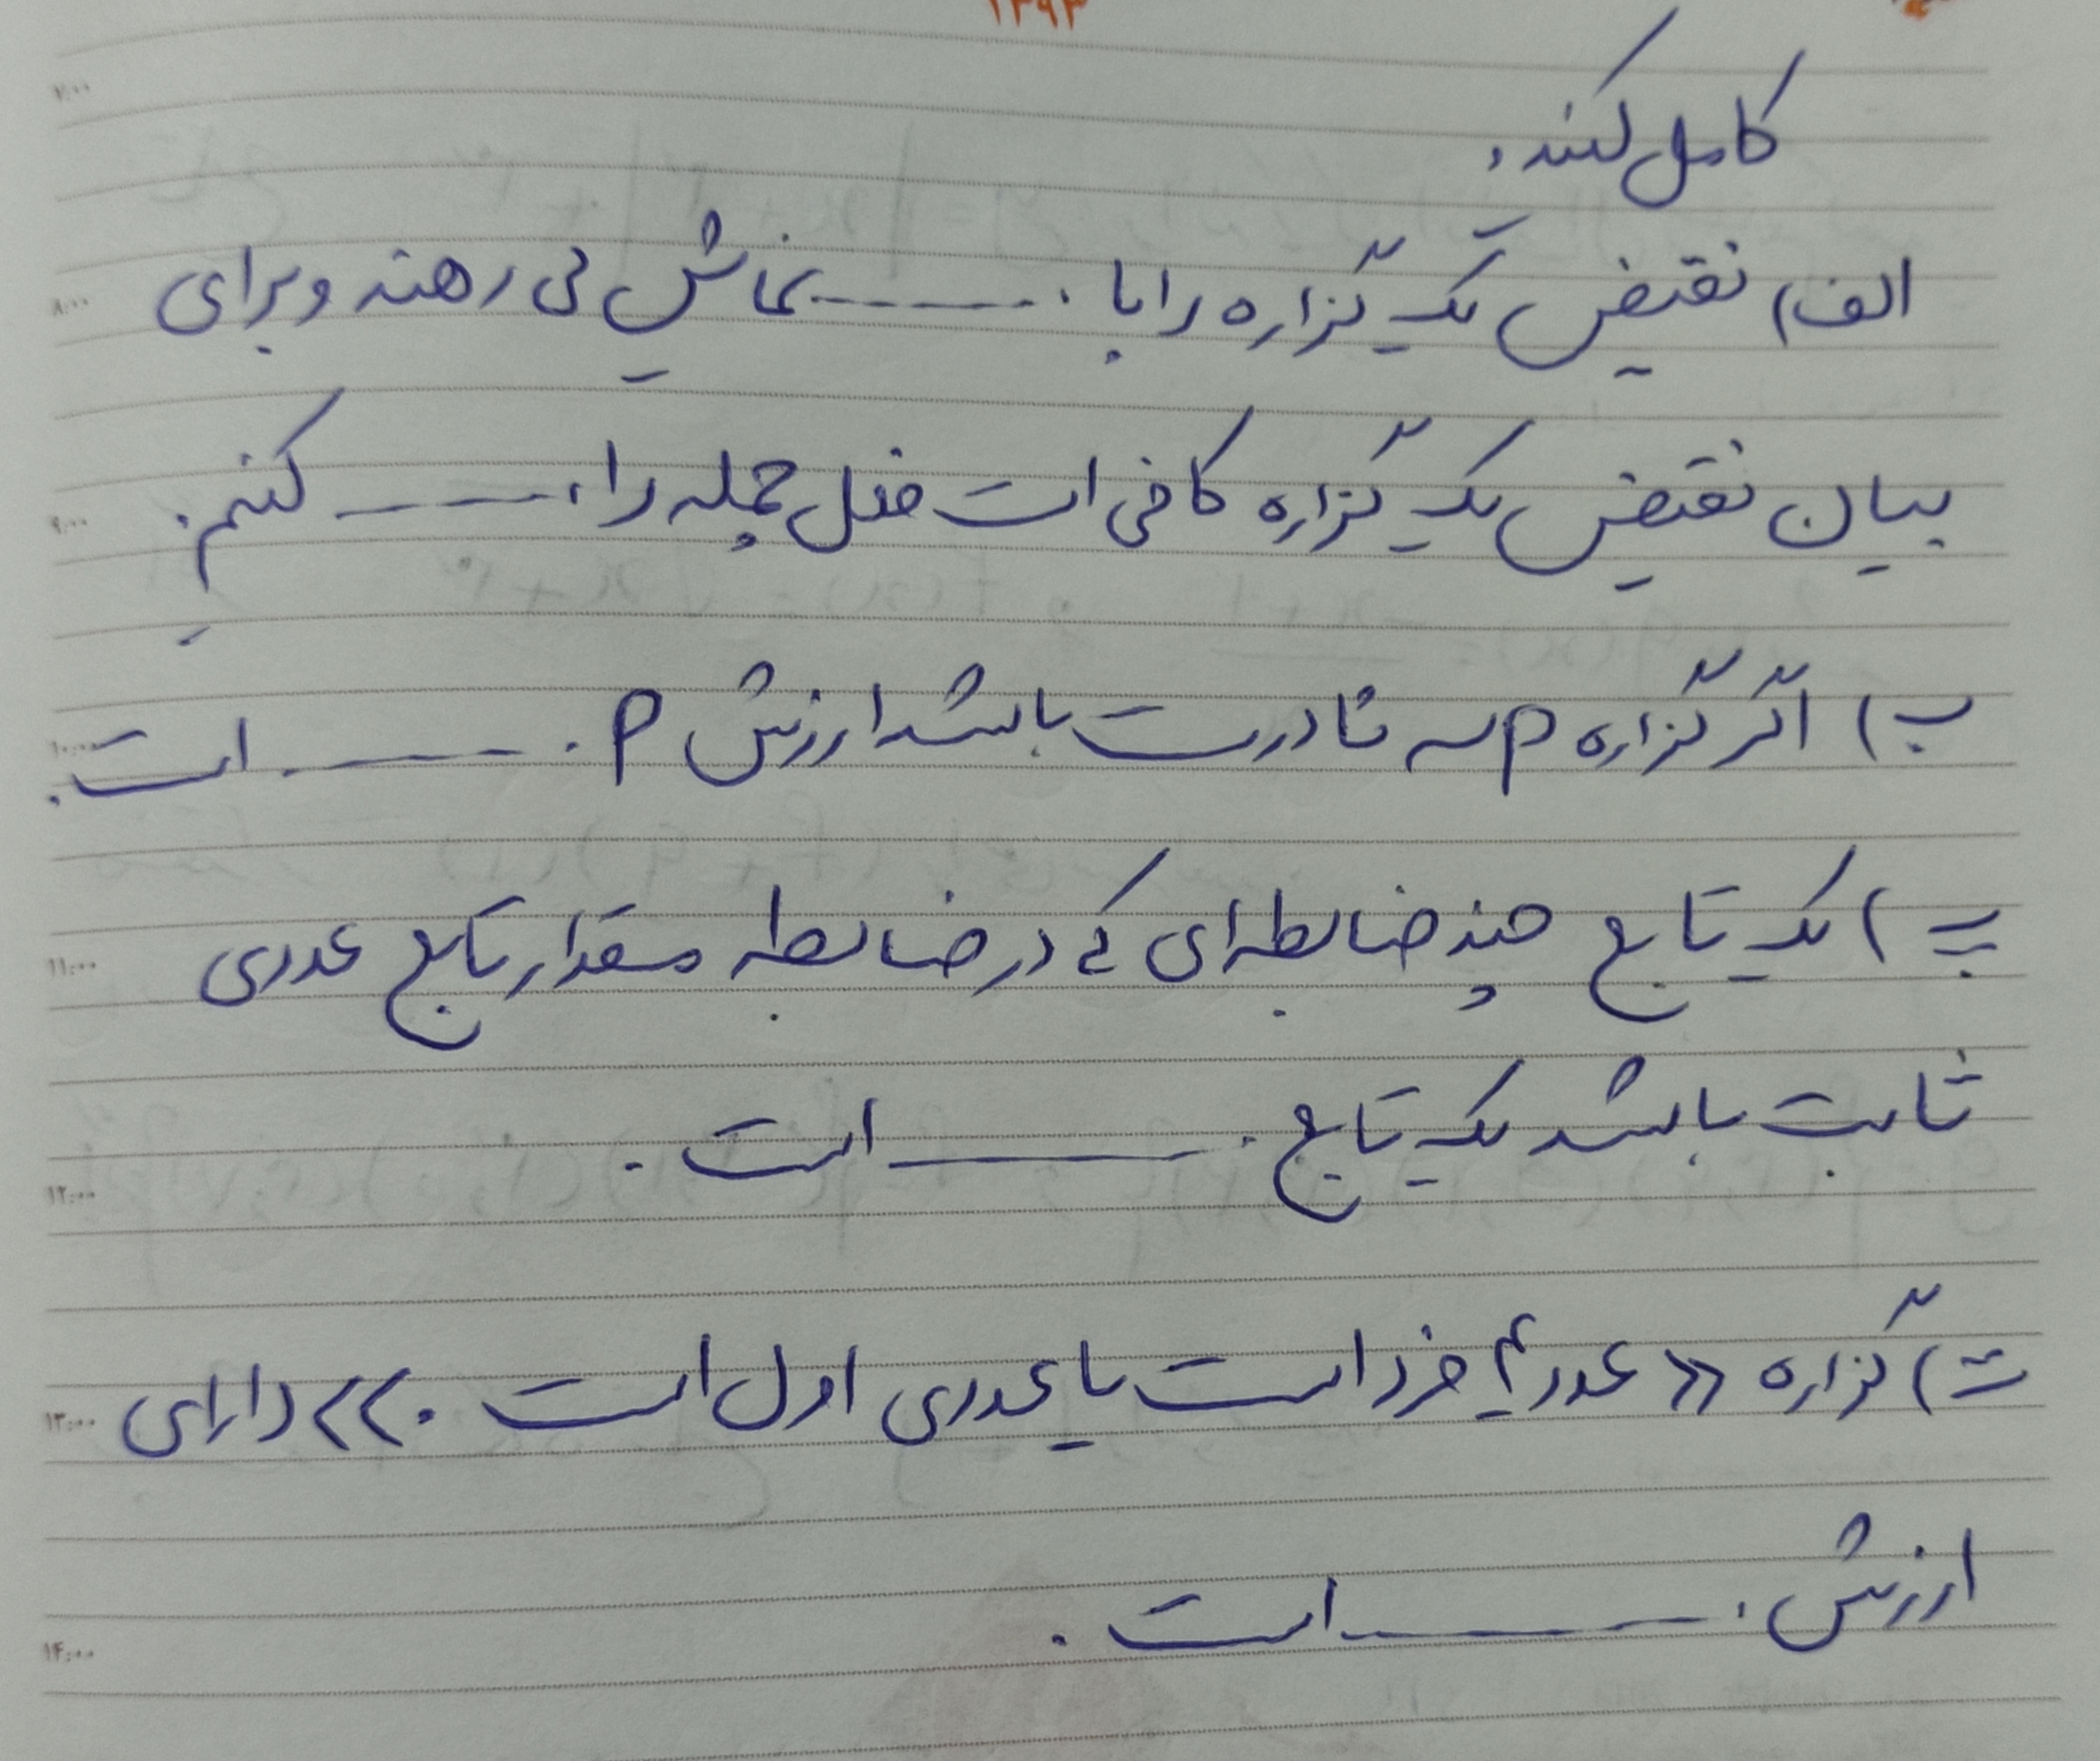 ۱۳۹۳
کامل کنید.
الف) نقیض یک گزاره را با ........ نمایش می دهند و برای
۸:۰۰
بیان نقیض یک گزاره کافی است فعل جمله را ........ کنیم.
۹:۰۰
ب) اگر گزاره ~p نادرست باشد ارزش p ........ است.
۱۰:۰۰
پ) یک تابع چند ضابطه ای که در ضابطه مقدار تابع عددی
۱۱:۰۰
ثابت باشد یک تابع ........ است.
۱۲:۰۰
ت) گزاره «عدد ۴ فرد است یا عددی اول است.» دارای
۱۳:۰۰
ارزش ........ است.
۱۴:۰۰